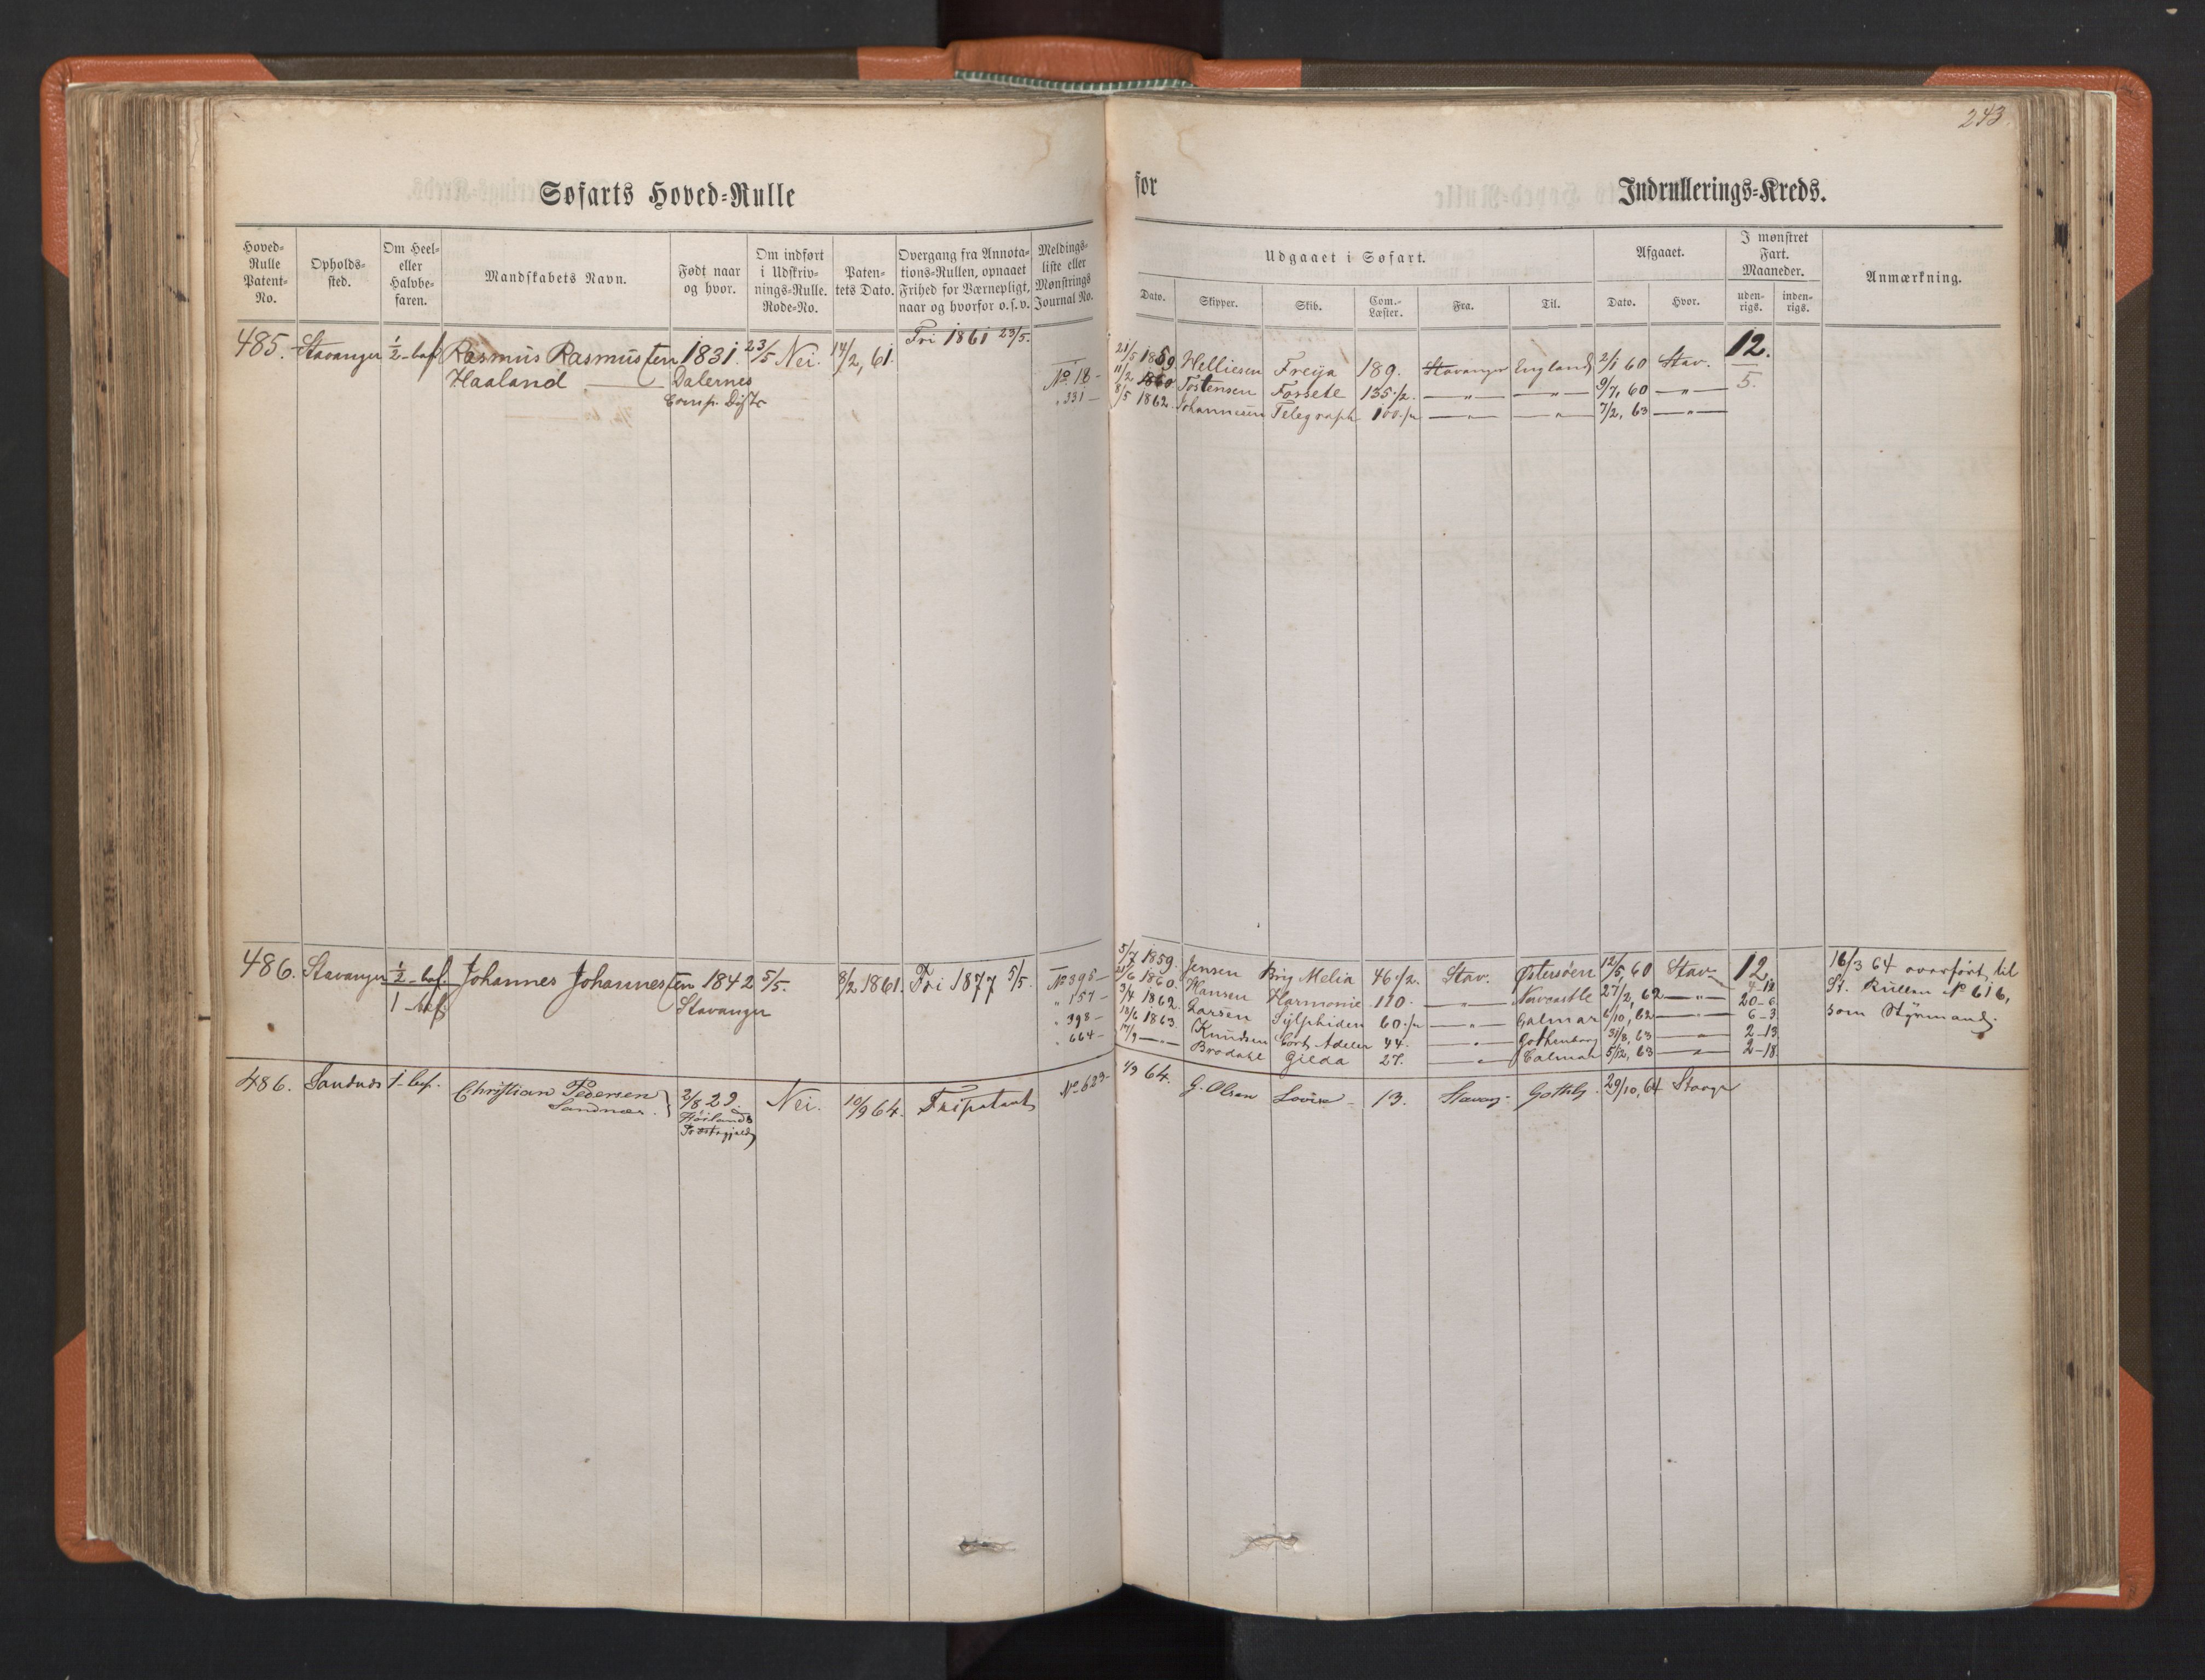 243
Søfarts Hoved-Rulle
for
Indrullerings-Kreds.
Hoved-Rulle Patent-No.
Opholds-sted.
Om Heel- eller Halvbe-faren.
Mandskabets Navn.
Født naar og hvor.
Om indført i Udskriv-nings-Rulle. Rode-No.
Paten-tets Dato.
Overgang fra Annota-tions-Rullen, opnaaet Frihed for Værnepligt, naar og hvorfor o.s.v.
Meldings-liste eller Mønstrings Journal No.
Udgaaet i Søfart.
Dato.
Skipper.
Skib.
Com.-Læster.
Fra.
Til.
Afgaaet.
Dato.
Hvor.
I mønstret Fart. Maaneder.
uden-rigs.
inden-rigs.
Anmærkning.
485. Stavanger ½-bef Rasmus Rasmussen 1831. 23/5 Nei. 14/2, 61. Fri 1861 23/5.
Haaland Dalernes
Comp. Distr
No 18 -
" 331 -
21/5 1859 Welliesen Freija 189. Stavanger England 2/1 60 Stav. 12.
11/2 1860 Tostensen Fossete 135 1/2. — " — — " — 9/7, 60 — " — 5.
8/5 1862. Johannesen Telegraph 100 1/2 — " — — " — 7/2, 63 — " —
486. Stavanger ½-bef. Johannes Johannessen 1842 5/5. 8/2 1861. Fri 1877 5/5. No 395 -
1 - bef Stavanger
" 157 -
" 398 -
" 664 -
5/7 1859. Jensen Brig Melia 46 1/2. Stav. Østersøen 12/5, 60 Stav 12.
21/6 1860. Hansen Harmonie 110 - — " — Newcastle 27/2, 62 — " — 20-6
3/4 1862. Larsen Sylphiden 60 1/2 — " — Calmar 6/10, 62 — " — 6-3
18/6 1863. Knudsen Cort Adeler 44. — " — Gothenborg 31/8, 63 — " — 2-13
17/9 — " — Brodahl Gilda 27. — " — Calmar 5/12, 63 — " — 2-18
16/3 64 overført til
St. Rullen No 616,
som Styrmand.
486. Sandnes 1-bef. Christian Pedersen 2/8 29. Nei. 10/9 64. Fripatent No 623-
Sandnes. Høilands
Præstegjeld
1/9 64. G. Olsen Lovise - 13. Stavang: Gothbg 29/10, 64 Stavgr